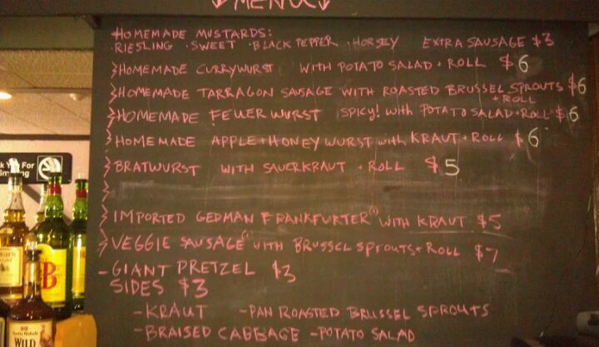 MENU
HOMEMADE MUSTARDS:
· RIESLING · SWEET · BLACK PEPPER · HORSEY EXTRA SAUSAGE $3
HOMEMADE CURRYWURST WITH POTATO SALAD + ROLL $6
HOMEMADE TARRAGON SAUSAGE WITH ROASTED BRUSSEL SPROUTS $6
+ ROLL
HOMEMADE FEUERWURST (SPICY! WITH POTATO SALAD + ROLL $6
HOMEMADE APPLE + HONEY WURST with KRAUT + ROLL $6
BRATWURST WITH SAUERKRAUT + ROLL $5
IMPORTED GERMAN FRANKFURTER WITH KRAUT $5
VEGGIE SAUSAGE WITH BRUSSEL SPROUTS + ROLL $7
- GIANT PRETZEL $3
SIDES $3
- KRAUT - PAN ROASTED BRUSSEL SPROUTS
- BRAISED CABBAGE - POTATO SALAD
You For
B
WILD